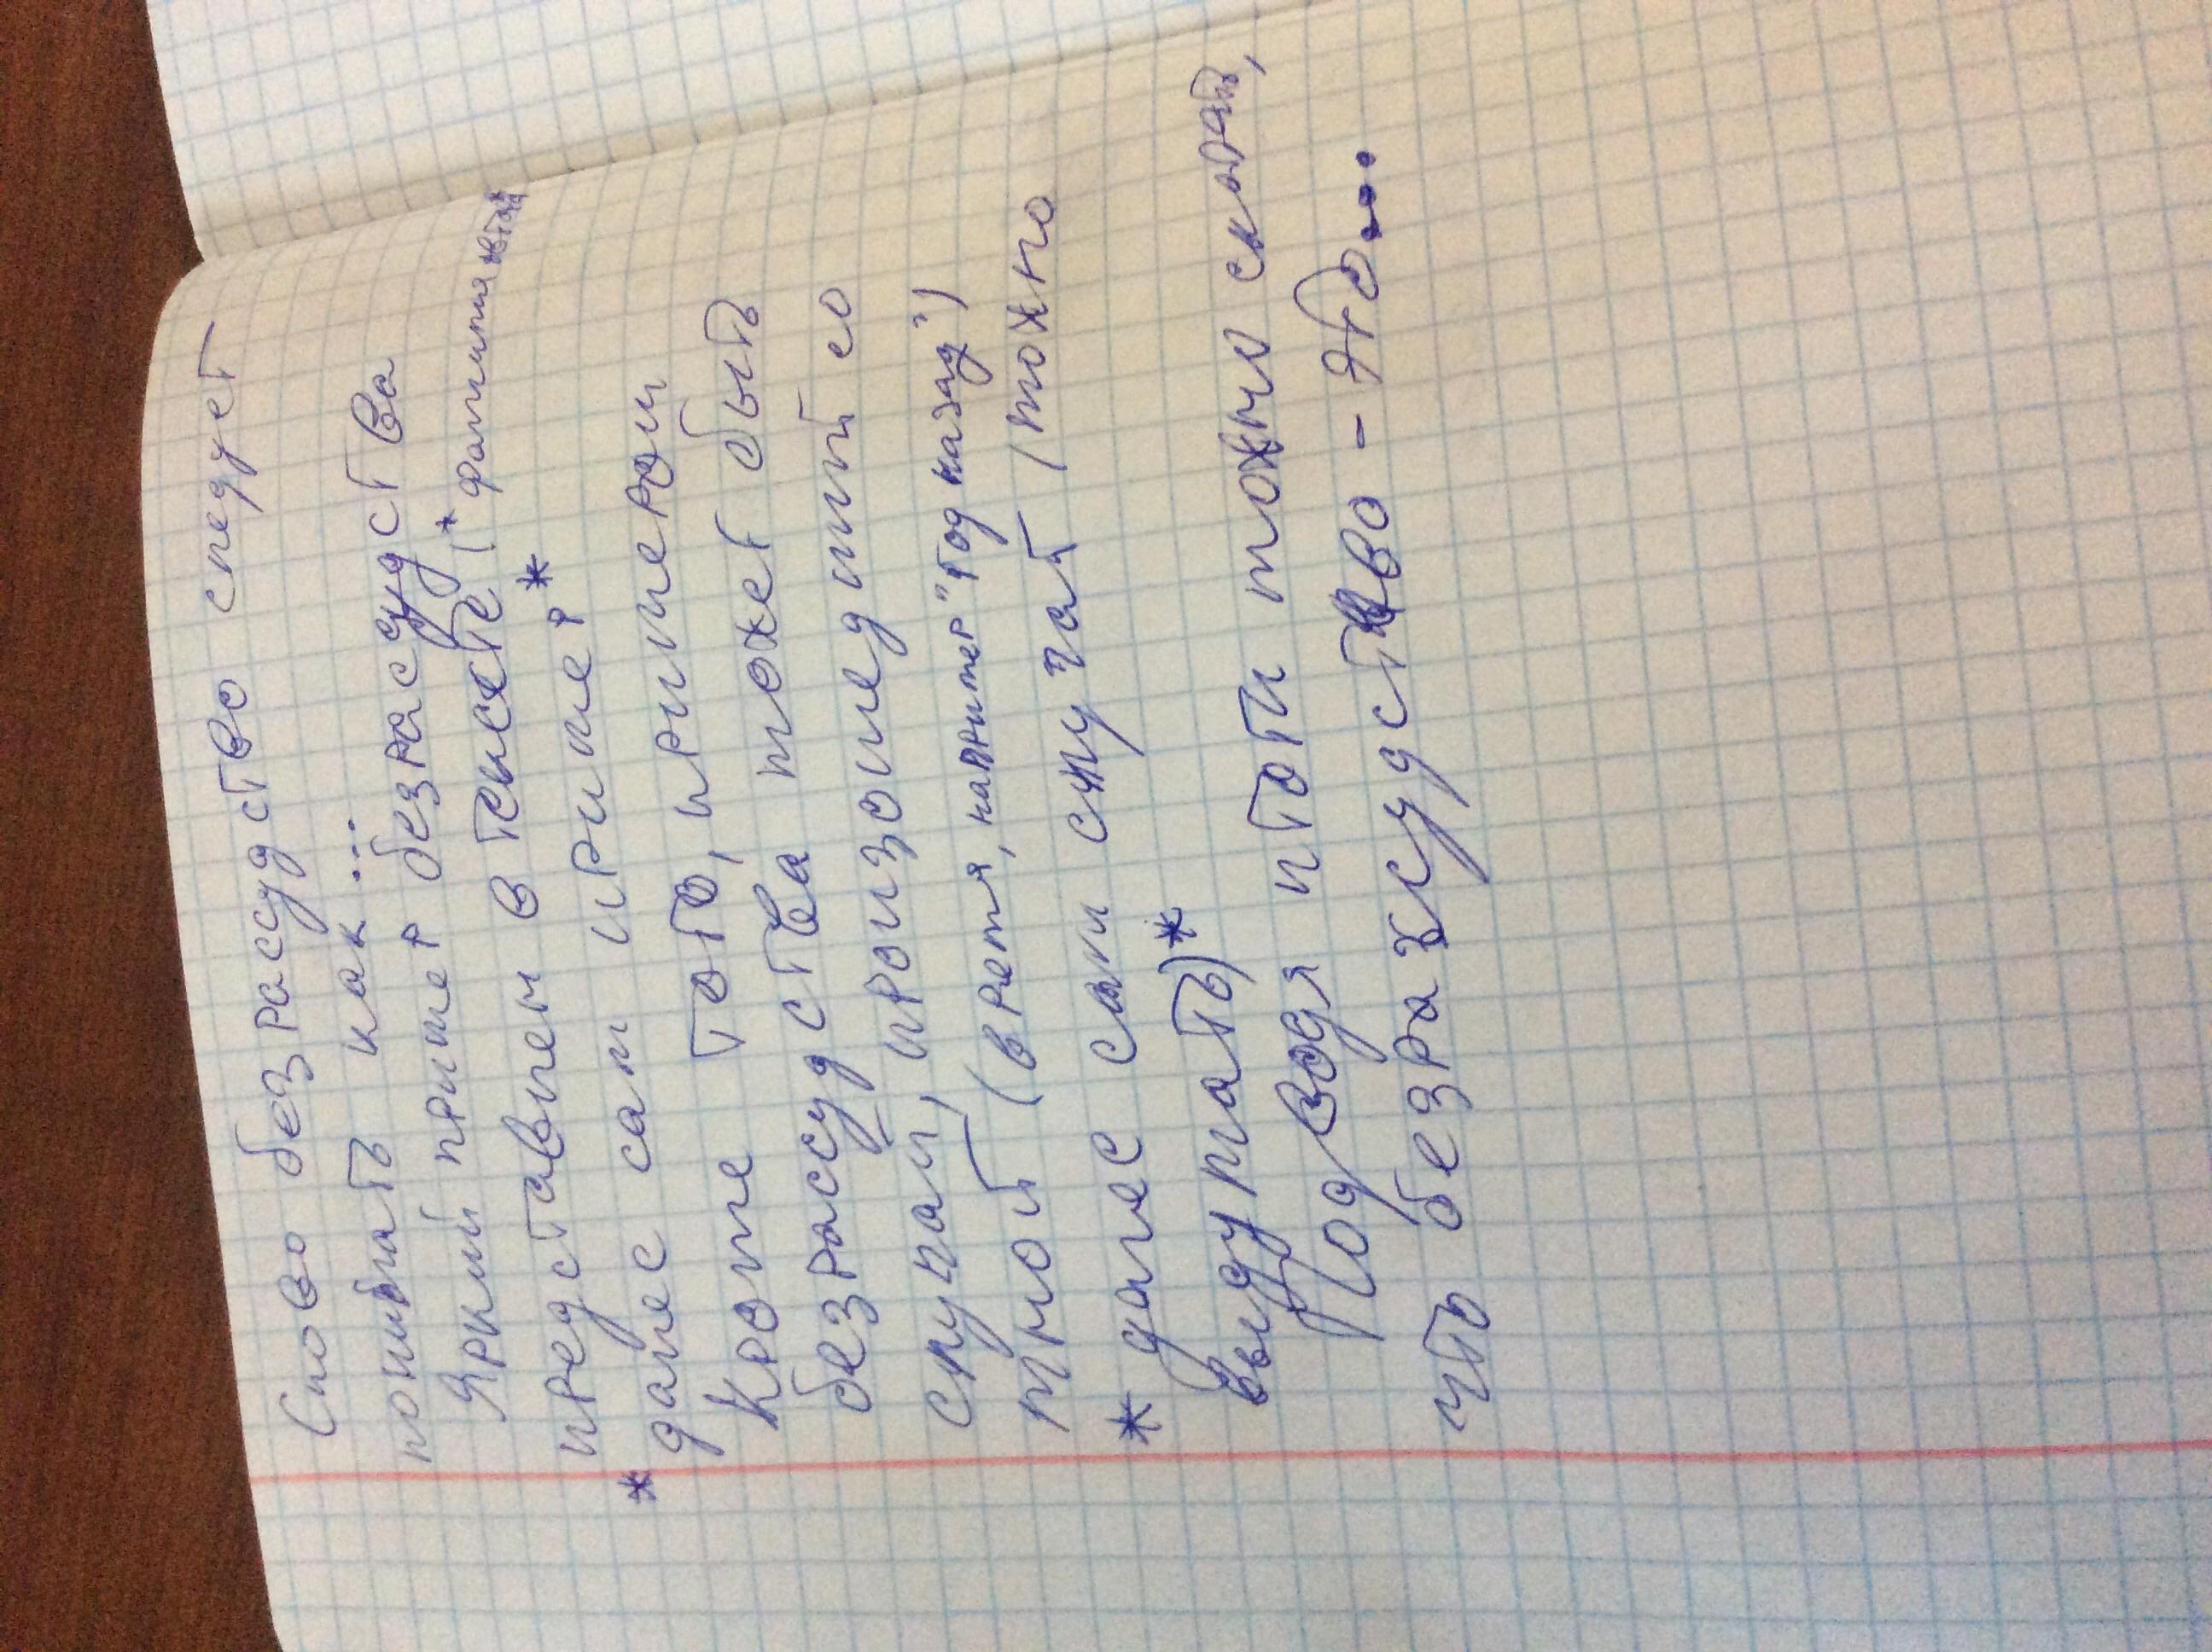 Слово безрассудство следует
понимать как...
Яркий пример безрассудства
представлен в тексте (* фамилия автора
* далее сам пример *
Кроме того, примером
безрассудства может быть
случай, произошедший со
мной (время, например "год назад")
* далее сам случай (можно
выдумать) *
Подводя итоги можно сказать,
что безрассудство - это...